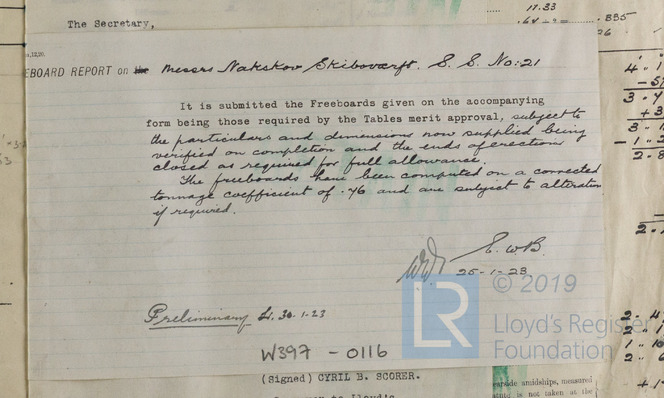 The Secretary,
17.33
.885
EBOARD REPORT on the Messrs Nakskov Skibsværft. S. S. No: 21
It is submitted the Freeboards given on the accompanying
form being those required by the Tables merit approval, subject to
the particulars and dimensions now supplied being
verified on completion and the ends of erections
closed as required for full allowance.
The freeboards have been computed on a corrected
tonnage coefficient of .76 and are subject to alteration
if required.
E. W. B.
25-1-23
Preliminary 30.1.23
© 2019
LR
Lloyd's Register
Foundation
W397 - 0116
(Signed) CYRIL B. SCORER.
amidships, measured
is not taken at the